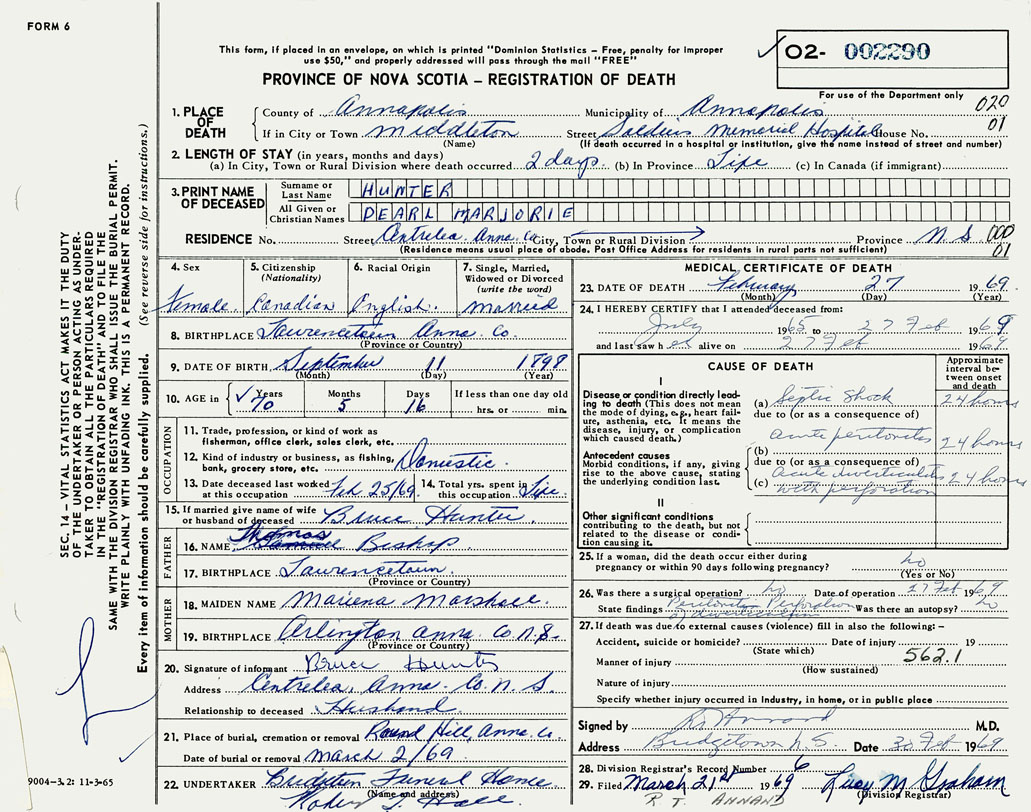 FORM 6
This form, if placed in an envelope, on which is printed "Dominion Statistics – Free, penalty for improper
use $50," and properly addressed will pass through the mail "FREE"
PROVINCE OF NOVA SCOTIA – REGISTRATION OF DEATH
O2- 002290
For use of the Department only
020
01
1. PLACE OF DEATH
County of Annapolis Municipality of Annapolis
If in City or Town Middleton Street Soldiers Memorial Hospital House No.
(Name) (If death occurred in a hospital or institution, give the name instead of street and number)
2. LENGTH OF STAY (in years, months and days)
(a) In City, Town or Rural Division where death occurred 2 days. (b) In Province Life (c) In Canada (if immigrant)
3. PRINT NAME OF DECEASED
Surname or Last Name HUNTER
All Given or Christian Names DEARL MARJORIE
RESIDENCE No. Street Centrelea Anna. Co City, Town or Rural Division Province N S 000
(Residence means usual place of abode. Post Office Address for residents in rural parts not sufficient) 01
4. Sex Female.
5. Citizenship (Nationality) Canadian
6. Racial Origin English.
7. Single, Married, Widowed or Divorced (write the word) Married
8. BIRTHPLACE Lawrencetown Anna. Co.
(Province or Country)
9. DATE OF BIRTH September 11 1898
(Month) (Day) (Year)
10. AGE in Years Months Days If less than one day old
70 5 16 hrs. or min.
OCCUPATION
11. Trade, profession, or kind of work as fisherman, office clerk, sales clerk, etc.
12. Kind of industry or business, as fishing, bank, grocery store, etc. Domestic.
13. Date deceased last worked at this occupation Feb 25/69 14. Total yrs. spent in this occupation Life
15. If married give name of wife or husband of deceased Bruce Hunter
FATHER
16. NAME Thomas Bishop
17. BIRTHPLACE Lawrencetown
(Province or Country)
MOTHER
18. MAIDEN NAME Marshall
19. BIRTHPLACE Arlington Anna. Co. N.S.
(Province or Country)
20. Signature of informant Bruce Hunter
Address Centrelea, Anna. Co. N. S.
Relationship to deceased Husband
21. Place of burial, cremation or removal Round Hill, Anna. Co.
Date of burial or removal March 2/69
22. UNDERTAKER Funeral Home
(Name and address)
Hall
MEDICAL CERTIFICATE OF DEATH
23. DATE OF DEATH February 27 1969
(Month) (Day) (Year)
24. I HEREBY CERTIFY that I attended deceased from:
July 1965 to 27 Feb 1969
and last saw her alive on 27 Feb 1969
CAUSE OF DEATH
Approximate interval between onset and death
I
Disease or condition directly leading to death (This does not mean the mode of dying, e.g., heart failure, asthenia, etc. It means the disease, injury, or complication which caused death.)
(a) Septic Shock 24 hours
due to (or as a consequence of)
Antecedent causes
Morbid conditions, if any, giving rise to the above cause, stating the underlying condition last.
(b) acute peritonitis 24 hours
due to (or as a consequence of)
(c) Acute diverticulitis with perforation 24 hours
II
Other significant conditions contributing to the death, but not related to the disease or condition causing it.
25. If a woman, did the death occur either during pregnancy or within 90 days following pregnancy? no
(Yes or No)
26. Was there a surgical operation? no Date of operation 27 Feb 1969
State findings Peritonitis Perforation Was there an autopsy? no
27. If death was due to external causes (violence) fill in also the following: –
Accident, suicide or homicide? Date of injury 19
(State which) 562.1
Manner of injury
(How sustained)
Nature of injury
Specify whether injury occurred in Industry, in home, or in public place
Signed by M.D.
Address Bridgetown N.S. Date Feb 1969
28. Division Registrar's Record Number 6
29. Filed March 21st 1969 Lucy M Graham
(Division Registrar)
R. T. ANNAND
SEC. 14 – VITAL STATISTICS ACT MAKES IT THE DUTY
OF THE UNDERTAKER OR PERSON ACTING AS UNDER-
TAKER TO OBTAIN ALL THE PARTICULARS REQUIRED
IN THE "REGISTRATION OF DEATH" AND TO FILE THE
SAME WITH THE DIVISION REGISTRAR WHO SHALL ISSUE THE BURIAL PERMIT.
WRITE PLAINLY WITH UNFADING INK. THIS IS A PERMANENT RECORD.
Every item of information should be carefully supplied. (See reverse side for instructions.)
9004-3.2: 11-3-65